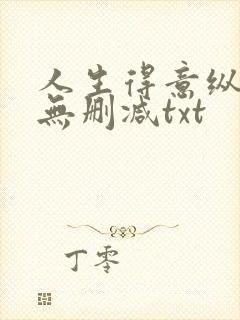 人生得意纵
無删减txt
丁零